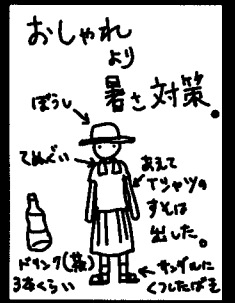 おしゃれ
より
暑さ対策。
ぼうし
てぬぐい
あえて
Tシャツの
すそは
出した。
ドリンク(茶)
3本くらい
サンダルに
くつしたばき